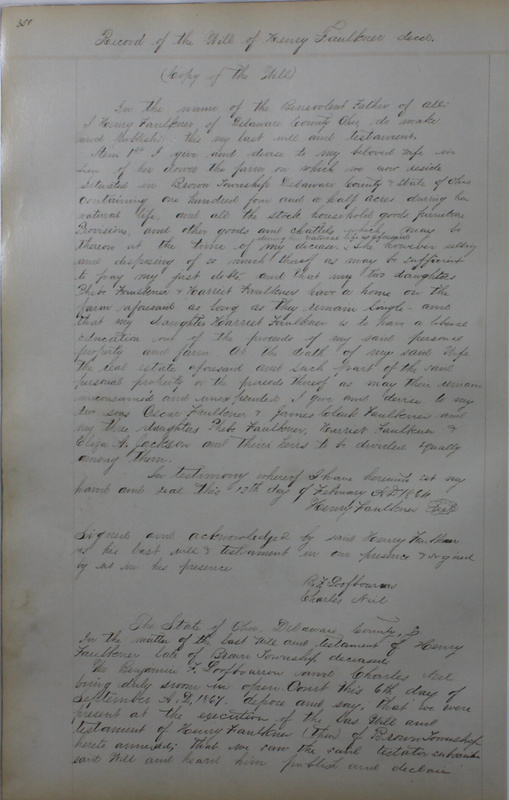 350
Record of the Will of Henry Faulkner decd.
(Copy of the Will)
In the name of the Benevolent Father of all:
I Henry Faulkner of Delaware County Ohio do make
and Publish this my last will and testament.
Item 1st I give and devise to my beloved wife in
lieu of her dower the farm on which we now reside
situated in Brown Township Delaware County & State of Ohio
containing one hundred four and a half acres during her
natural life, and all the stock household goods furniture
Provisions and other goods and chattels which may be
during her natural life as aforesaid
thereon at the time of my decease, she however selling
and disposing of so much thereof as may be sufficient
to pay my just debts and that my two daughters
Phebe Faulkner & Harriet Faulkner have a home on the
farm aforesaid as long as they remain single and
that my daughter Harriet Faulkner is to have a
education out of the proceeds of my said personal
property and farm At the death of my said wife
the real estate aforesaid and such part of the said
personal property or the proceeds thereof as may then remain
unconsumed and unexpended I give and devise to my
two sons Oscar Faulkner & James Faulkner and
my three daughters Phebe Faulkner, Harriet Faulkner &
Eliza A. Jackson and their heirs to be divided equally
among them.
In testimony whereof I have hereunto set my
hand and seal this 12th day of February AD 1864
Henry Faulkner Seal
Signed and acknowledged by said Henry Faulkner
as his last will & testament in our presence & signed
by us in his presence
B. F. Loofbourrow
Charles Neil
The State of Ohio, Delaware County, SS
In the matter of the last Will and testament of Henry
Faulkner late of Brown Township deceased
We Benjamin F. Loofbourrow and Charles Neil
being duly sworn in open Court this 6th day of
September A.D. 1867. depose and say, that we were
present at the execution of the last Will and
testament of Henry Faulkner of Brown Township
hereto annexed; that we saw the said testator subscribe
said Will and heard him publish and declare